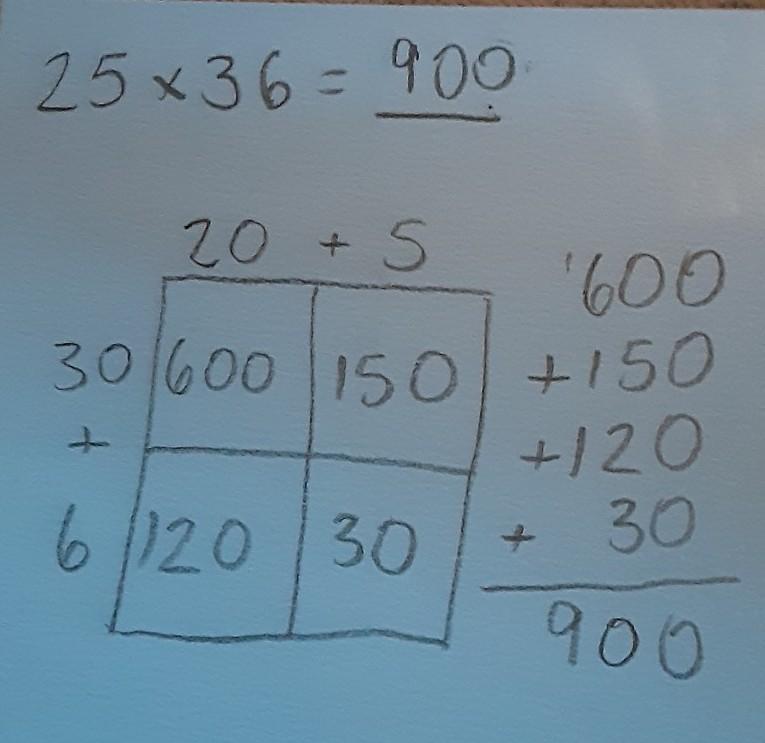 25 × 36 = 900
20 + 5
30 600 150
+
6 120 30
1600
+150
+120
+ 30
900